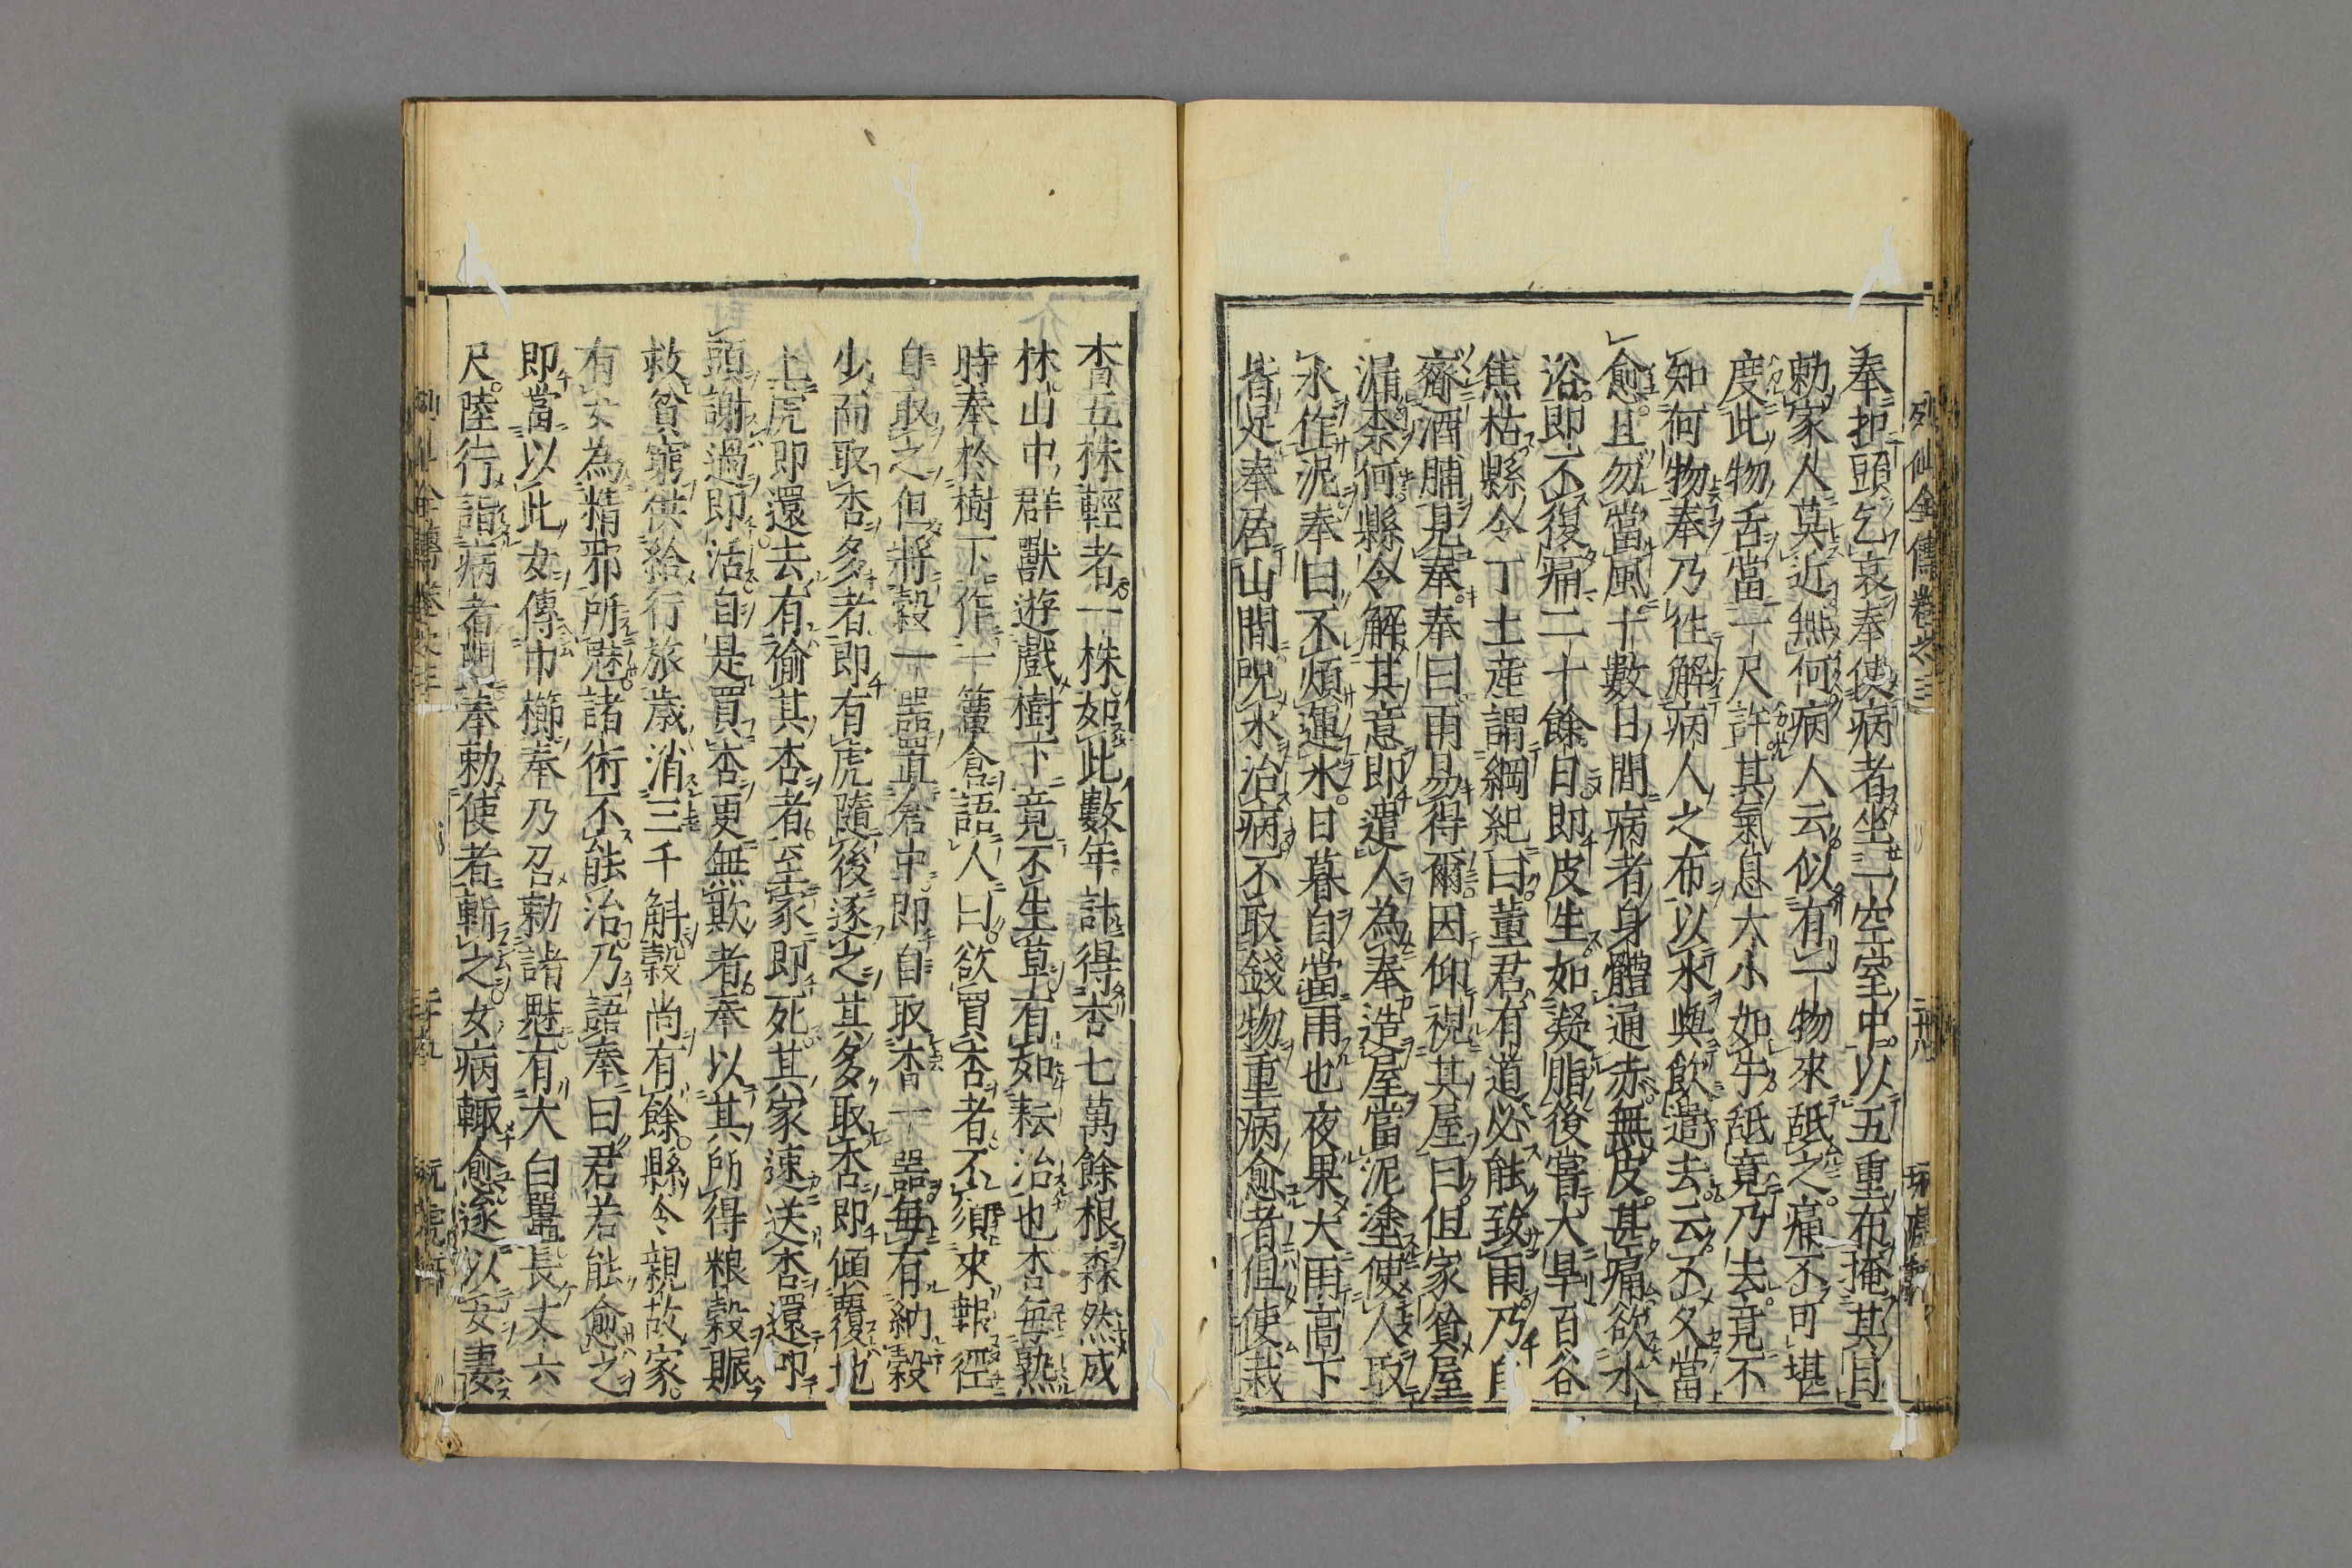 奉扣頭乞哀奉使病者坐一空室中以五重布掩其目
勅家人莫近無何病人云似有一物來舐之痛不可堪
度此物舌當一尺許其氣息大小如牛舐竟乃去竟不
知何物奉乃往解病人之布以水與飲遣去云不久當
愈且勿當風十數日間病者身體通赤無皮甚痛欲水
浴即不復痛二十餘日即皮生如凝脂後嘗大旱百谷
焦枯縣令丁土産謂綱紀曰董君有道必能致雨乃自
齎酒脯見奉奉曰雨易得爾因仰視其屋曰但家貧屋
漏柰何縣令解其意即遣人為奉造屋當泥塗使人取
水作泥奉曰不煩運水日暮自當雨也夜果大雨高下
皆足奉居山間呪水治病不取錢物重病愈者但使栽
杏五株輕者一株如此數年計得杏七萬餘根森然成
林山中群獸遊戲樹下竟不生草有如耘治也杏每熟
時奉於樹下作一簞倉語人曰欲買杏者不須來報徑
自取之但將穀一器置倉中即自取杏一器每有納穀
少而取杏多者即有虎隨後逐之其多取杏即傾覆地
上虎即還去有偷其杏者至家即死其家速送杏還叩
頭謝過即活自是買杏更無欺者奉以其所得粮穀賑
救貧窮供給行旅歳消三千斛穀尚有餘縣令親故家
有女為精邪所魅諸術不能治乃語奉曰君若能愈之
即當以此女傳巾櫛奉乃召勅諸魅有大白鼉長丈六
尺陸行詣病者門奉勅使者斬之女病輙愈遂以女妻
列仙全傳卷之三
三十八
列仙全傳卷之三
三十九